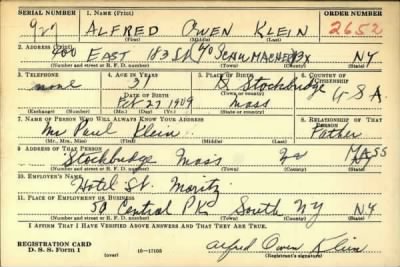 SERIAL NUMBER 1. NAME (Print) ORDER NUMBER
927 ALFRED OWEN KLEIN 2652
(First) (Middle) (Last)
2. ADDRESS (Print)
400 EAST 183 St % SCHUMACHER BX NY
(Number and street or R. F. D. number) (Town) (County) (State)
3. TELEPHONE 4. AGE IN YEARS 5. PLACE OF BIRTH 6. COUNTRY OF CITIZENSHIP
none 31 Stockbridge U S A
DATE OF BIRTH (Town or county)
Feb 27 1909 Mass
(Exchange) (Number) (Mo.) (Day) (Yr.) (State or country)
7. NAME OF PERSON WHO WILL ALWAYS KNOW YOUR ADDRESS 8. RELATIONSHIP OF THAT PERSON
Mr Paul Klein Father
(Mr., Mrs., Miss) (First) (Middle) (Last)
9. ADDRESS OF THAT PERSON
Stockbridge Mass MASS
(Number and street or R. F. D. number) (Town) (County) (State)
10. EMPLOYER'S NAME
Hotel St. Moritz
11. PLACE OF EMPLOYMENT OR BUSINESS
50 Central PK South NY NY
(Number and street or R. F. D. number) (Town) (County) (State)
I AFFIRM THAT I HAVE VERIFIED ABOVE ANSWERS AND THAT THEY ARE TRUE.
REGISTRATION CARD
D. S. S. Form 1 (over) 16—17105 Alfred Owen Klein
(Registrant's signature)